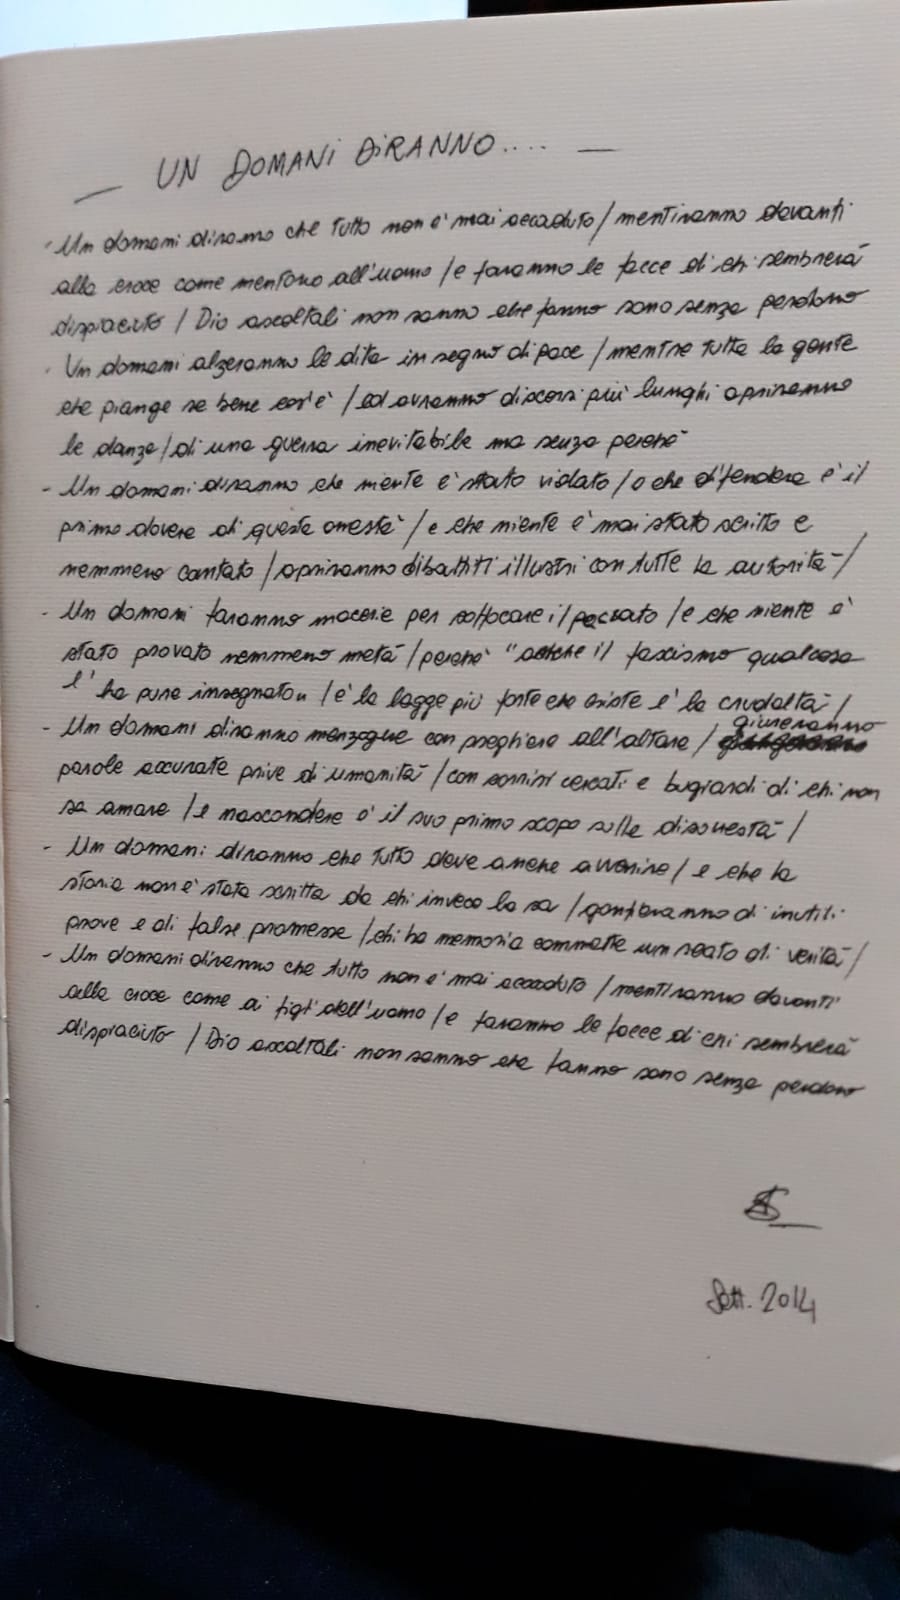 — UN DOMANI DIRANNO.... —
- Un domani diranno che tutto non è mai accaduto / mentiranno davanti
alla croce come mentono all'uomo / e faranno le facce di chi sembrerà
dispiaciuto / Dio ascoltali non sanno che fanno sono senza perdono
- Un domani alzeranno le dita in segno di pace / mentre tutta la gente
che piange sa bene cos'è / ed avranno discorsi più lunghi apriranno
le danze / di una guerra inevitabile ma senza perché
- Un domani diranno che niente è stato violato / o che difendere è il
primo dovere di queste onestà / e che niente è mai stato scritto e
nemmeno cantato / apriranno dibattiti illustri con tutte le autorità /
- Un domani faranno macerie per soffocare il passato / e che niente è
stato provato nemmeno metà / perché "anche il fascismo qualcosa
l'ha pure insegnato" / è la legge più forte che esiste è la crudeltà /
- Un domani diranno menzogne con preghiere all'altare / giureranno
parole accurate prive di umanità / con sorrisi cercati e bugiardi di chi non
sa amare / e nascondere è il suo primo scopo sulle disonestà /
- Un domani diranno che tutto deve anche avvenire / e che la
storia non è stata scritta da chi invece la sa / gonfieranno di inutili
prove e di false promesse / chi ha memoria commette un reato di verità /
- Un domani diranno che tutto non è mai accaduto / mentiranno davanti
alla croce come ai figli dell'uomo / e faranno le facce di chi sembrerà
dispiaciuto / Dio ascoltali non sanno che fanno sono senza perdono
Sett. 2014